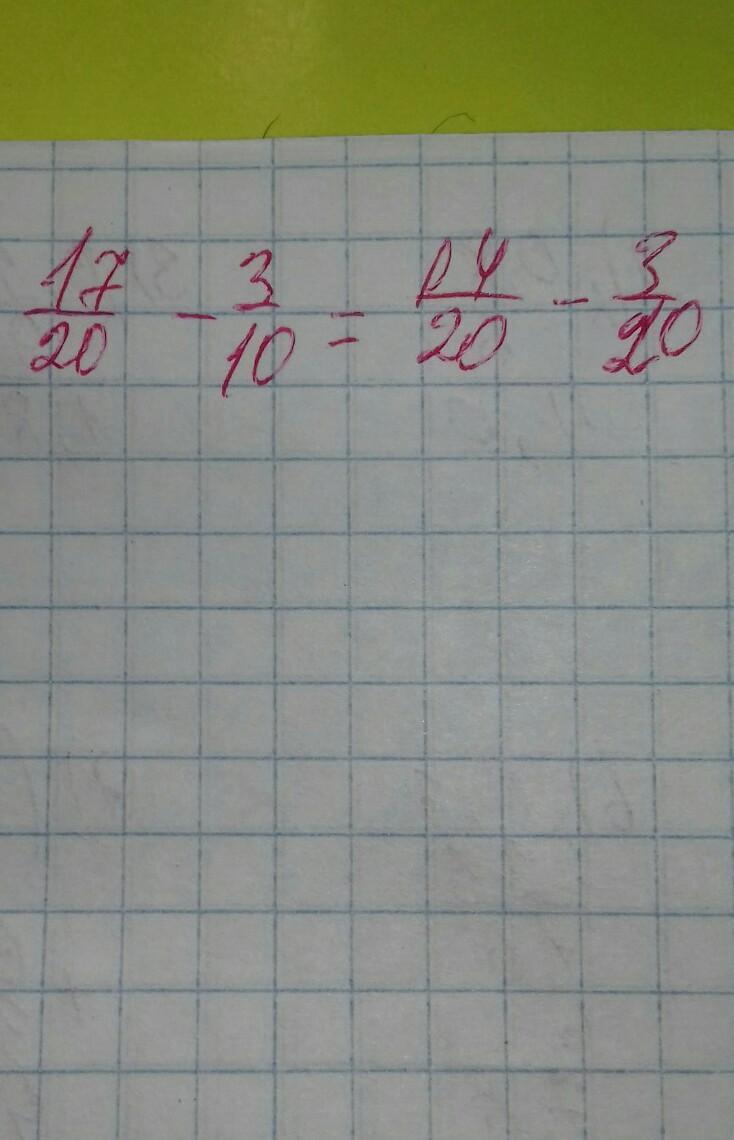 17/20 - 3/10 = 14/20 - 3/20